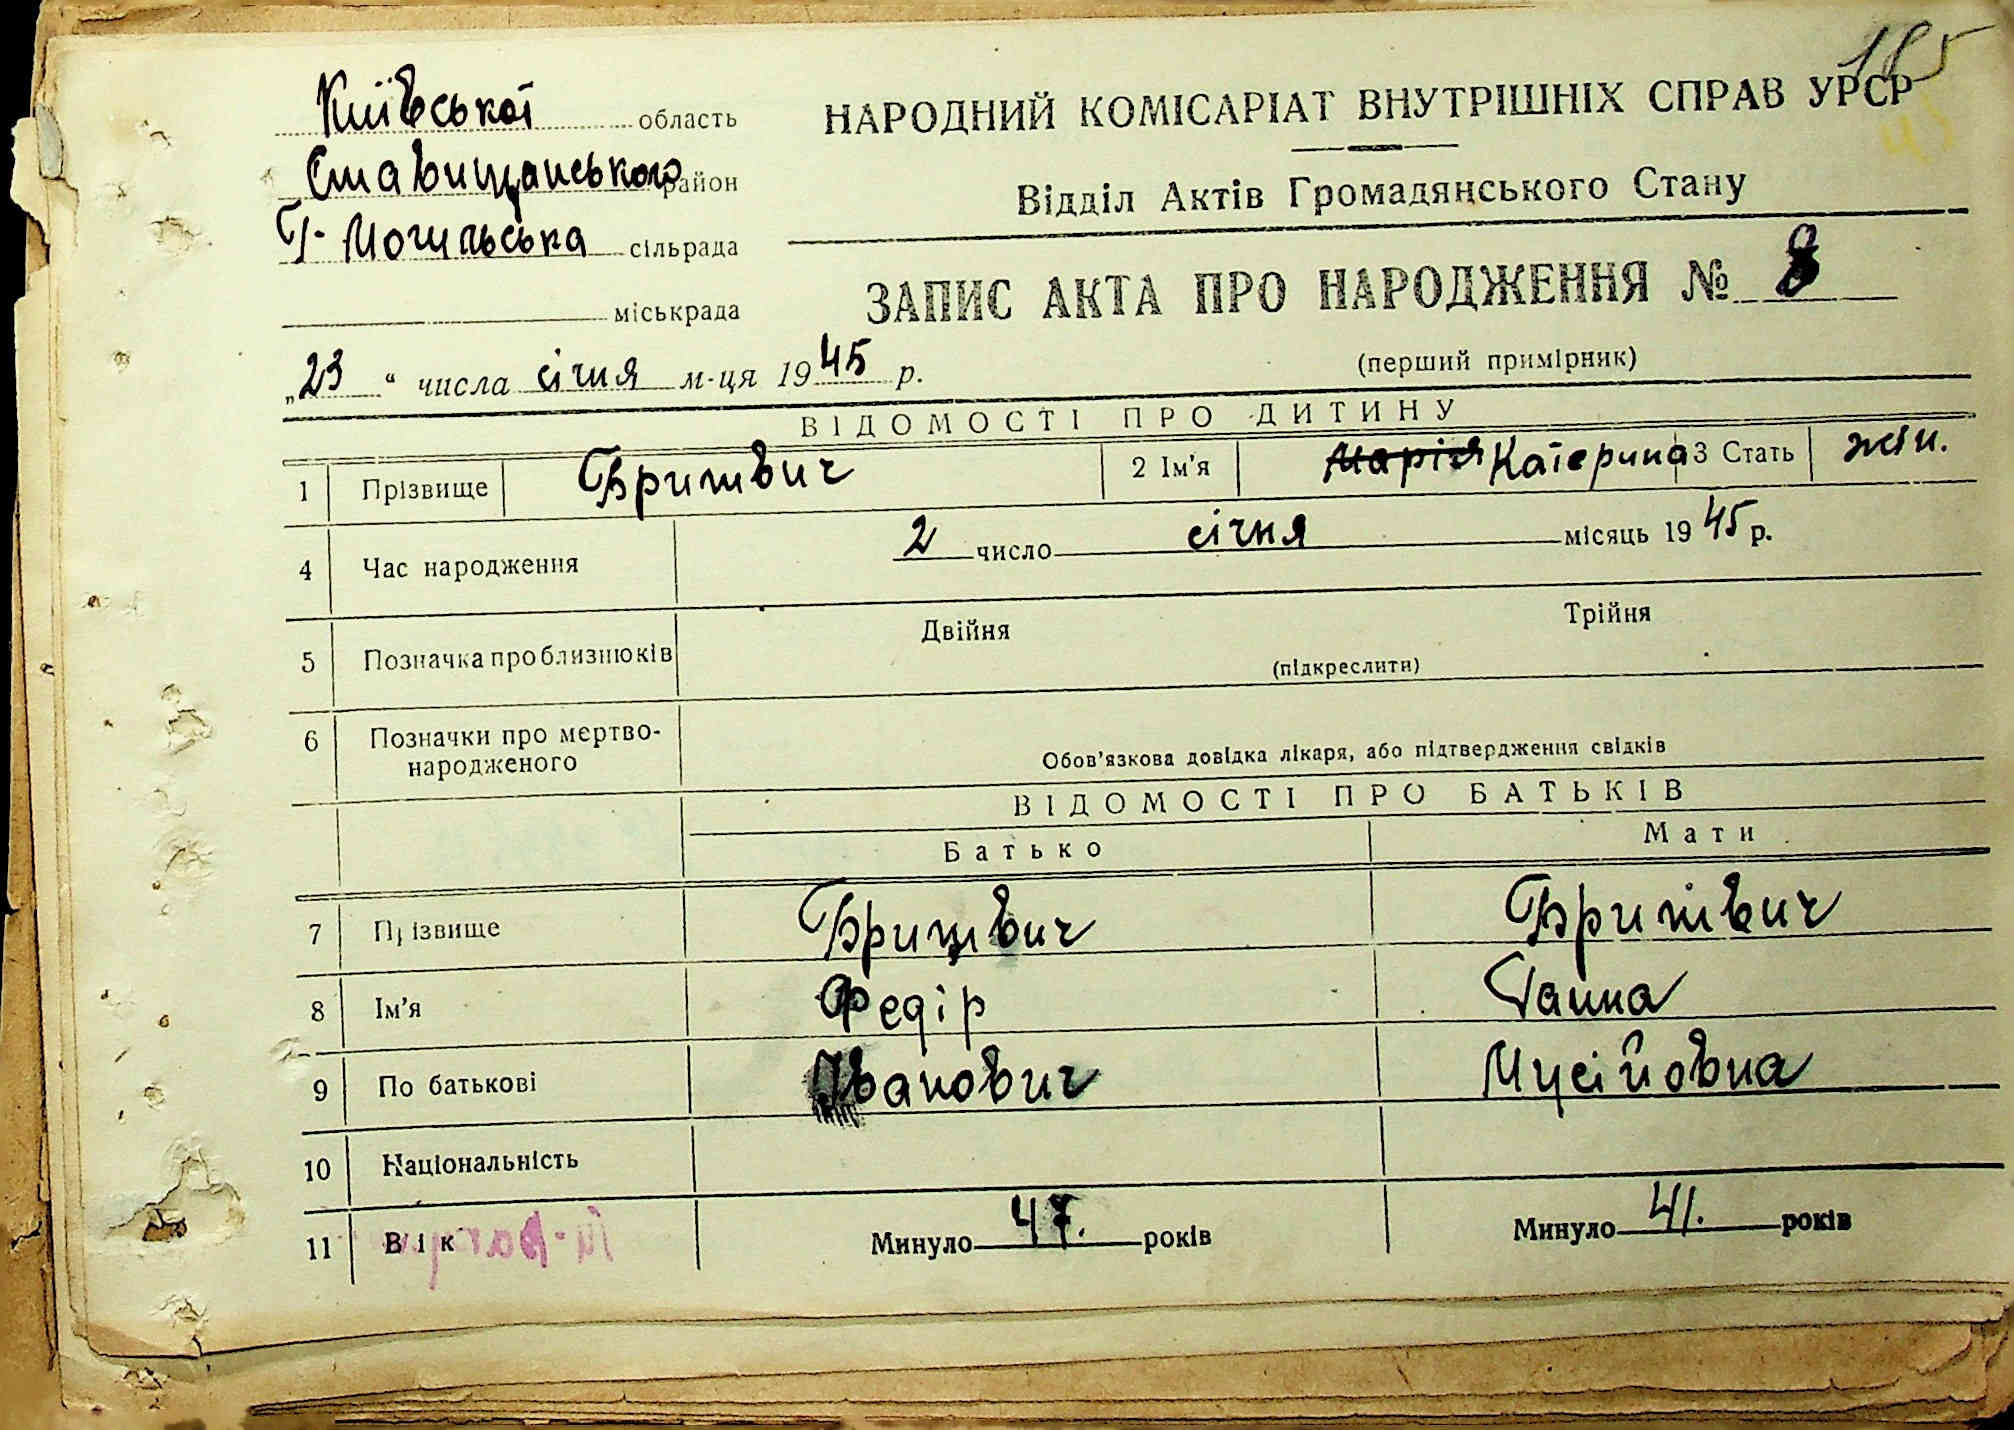 185
Київської область
Ставищанського район
Г-Могильська сільрада
міськрада
„23“ числа січня м-ця 1945 р.
НАРОДНИЙ КОМІСАРІАТ ВНУТРІШНІХ СПРАВ УРСР
Відділ Актів Громадянського Стану
ЗАПИС АКТА ПРО НАРОДЖЕННЯ № 8
(перший примірник)
ВІДОМОСТІ ПРО ДИТИНУ
1 Прізвище Бритвич 2 Ім'я Марія Катерина 3 Стать жін.
4 Час народження 2 число січня місяць 1945 р.
5 Позначка про близнюків Двійня Трійня
(підкреслити)
6 Позначки про мертво-
народженого Обов'язкова довідка лікаря, або підтвердження свідків
ВІДОМОСТІ ПРО БАТЬКІВ
Батько Мати
7 Прізвище Бритвич Бритвич
8 Ім'я Федір Ганна
9 По батькові Іванович Мусійовна
10 Національність
11 Вік Минуло 47. років Минуло 41. років